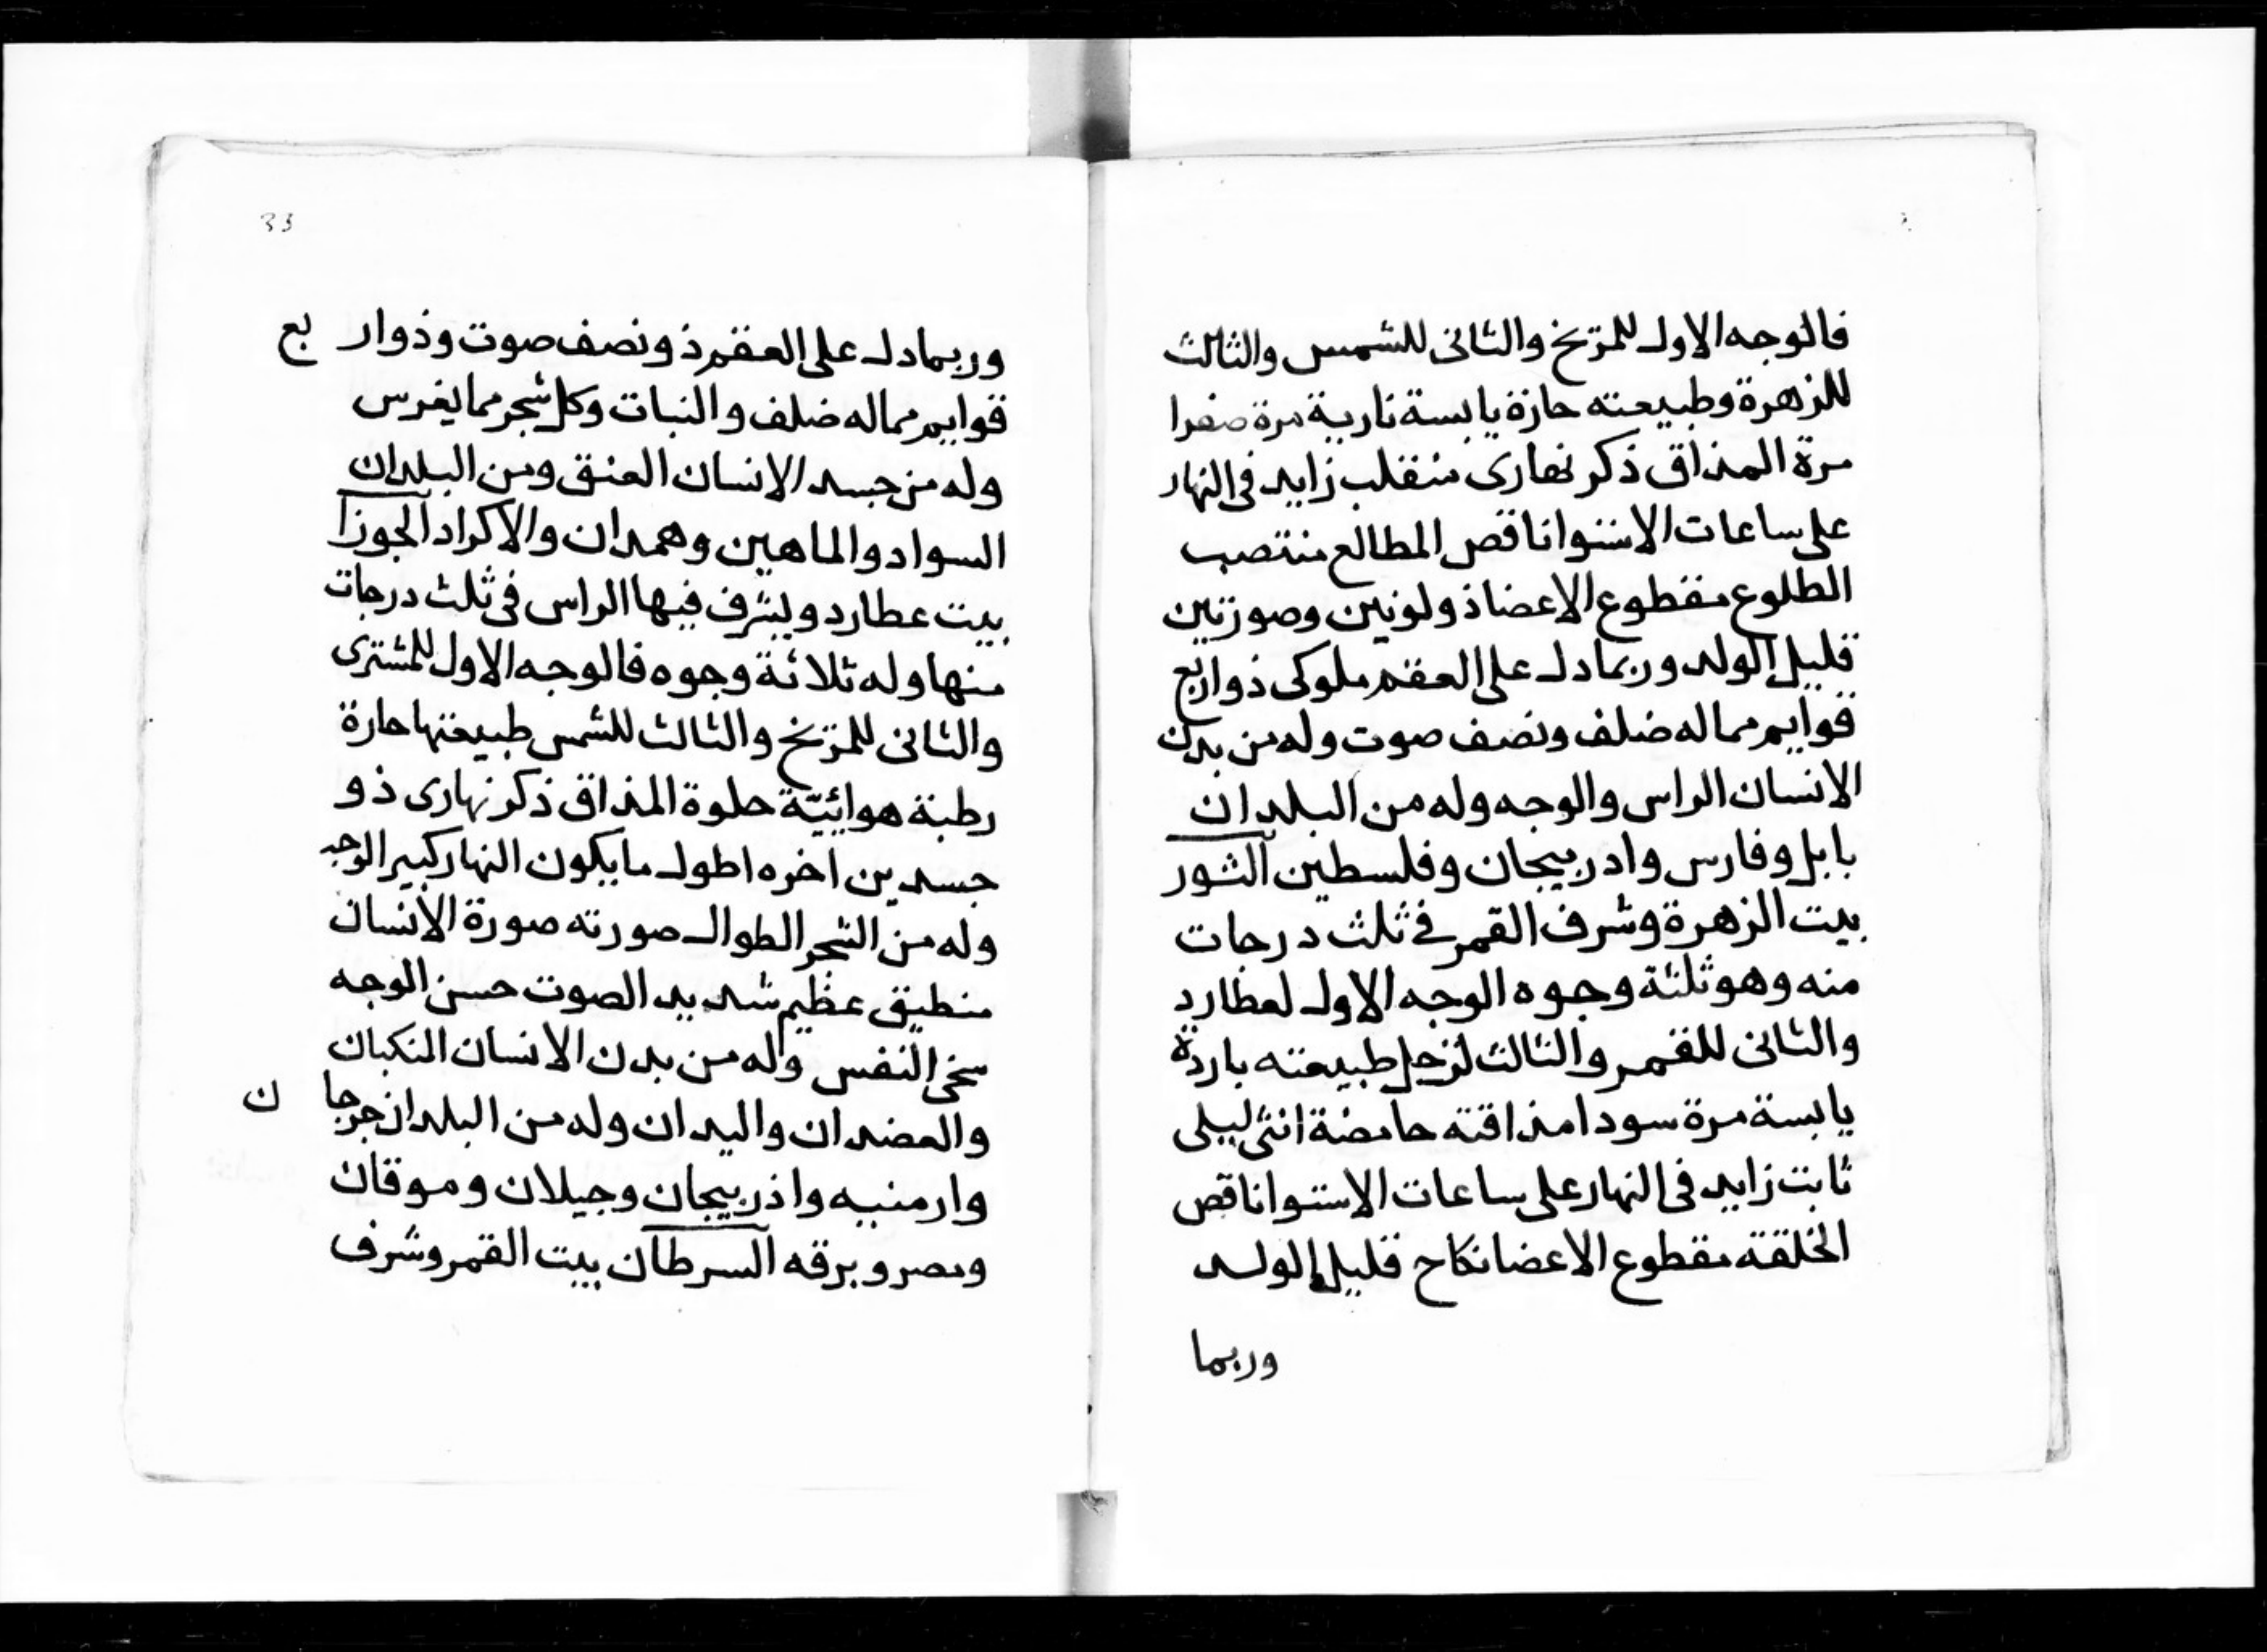 فالوجه الاول للمريخ والثانى للشمس والثالث
للزهرة وطبيعته حارة يابسة نارية مرة صفرا
مرة المذاق ذكر نهارى منقلب زايد فى النهار
على ساعات الاستوا ناقص المطالع منتصب
الطلوع مقطوع الاعضا ذو لونين وصورتين
قليل الولد وربما دل على العقم ملوكى ذو اربع
قوايم مما له ضلف ونصف صوت وله من بدن
الانسان الراس والوجه وله من البلدان
بابل وفارس وادربيجان وفلسطين الثور
بيت الزهرة وشرف القمر فى ثلث درجات
منه وهو ثلثة وجوه الوجه الاول لعطارد
والثانى للقمر والثالث لزحل طبيعته باردة
يابسة مرة سودا مذاقته حامضة انثى ليلى
ثابت زايد فى النهار على ساعات الاستوا ناقص
الخلقة مقطوع الاعضا نكاح قليل الولد
وربما
33
وربما دل على العقم ذو نصف صوت وذو اربع
قوايم مما له ضلف والنبات وكل شجر مما يغرس
وله من جسد الانسان العنق ومن البلدان
السواد والماهين وهمدان والاكراد الجوزا
بيت عطارد ويشرف فيها الراس فى ثلث درجات
منها وله ثلاثة وجوه فالوجه الاول للمشترى
والثانى للمريخ والثالث للشمس طبيعتها حارة
رطبة هوائيّة حلوة المذاق ذكر نهارى ذو
جسدين اخره اطول ما يكون النهار كبير الوجه
وله من الشجر الطوال صورته صورة الانسان
منطيق عظيم شديد الصوت حسن الوجه
سخى النفس وله من بدن الانسان المنكبان
والعضدان واليدان وله من البلدان جرجان
وارمنيه واذربيجان وجيلان وموقان
ومصر وبرقه السرطان بيت القمر وشرف